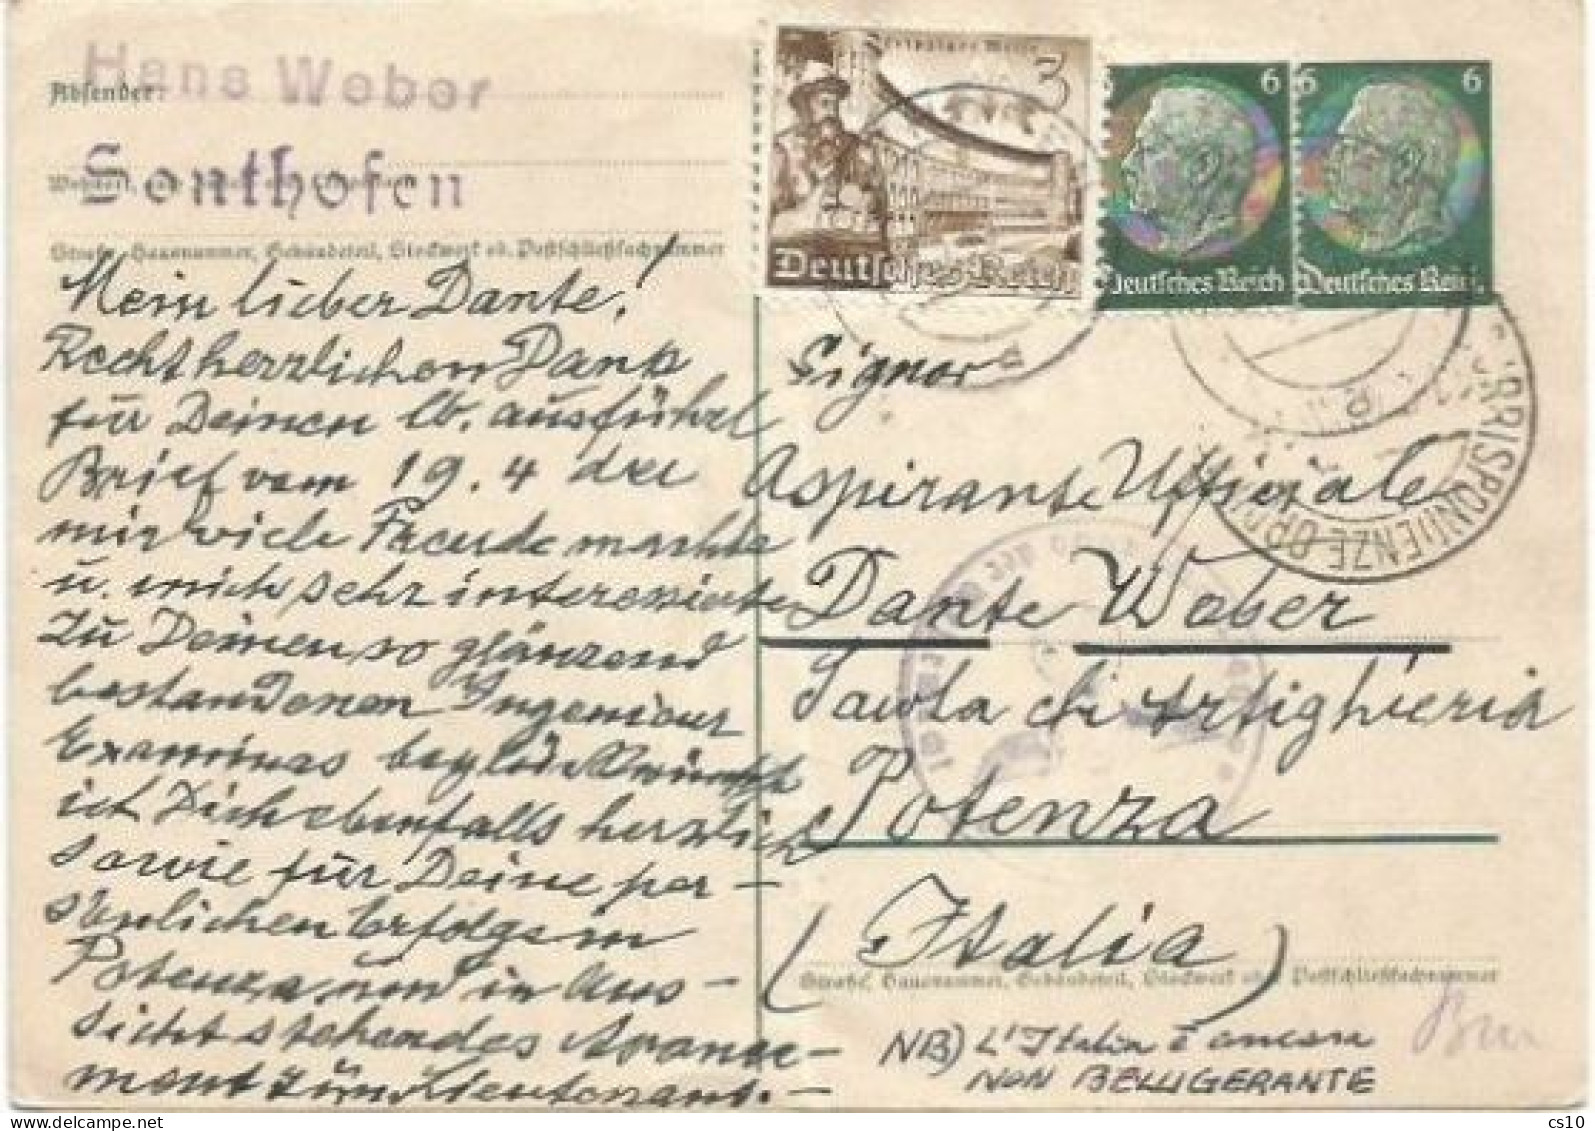 Hans Weber
Absender:
Sonthofen
Straße, Hausnummer, Gebäudeteil, Stockwerk od. Postschließfachnummer
Mein lieber Dante!
Recht herzlichen Dank
für Deinen lb. ausführl
Brief vom 19.4 der
mir viele Freude machte
u. mich sehr interessierte
Zu Deinen so glänzend
bestandenen Ingenieur
Examinas beglückwünsche
ich Dich ebenfalls herzlich
sowie für Deine per-
sönlichen Erfolge in
Potenza und in Aus-
sicht stehendes Avance-
ment zum Lieutenant.-
3
Deutsches Reich
6
Deutsches Reich
6 6
Deutsches Reich
CORRISPONDENZE
Signor
Aspirante Ufficiale
Dante Weber
Scuola di Artiglieria
Potenza
(Italia)
Straße, Hausnummer, Gebäudeteil, Stockwerk oder Postschließfachnummer
NB) L'Italia è ancora
NON BELLIGERANTE
cs10